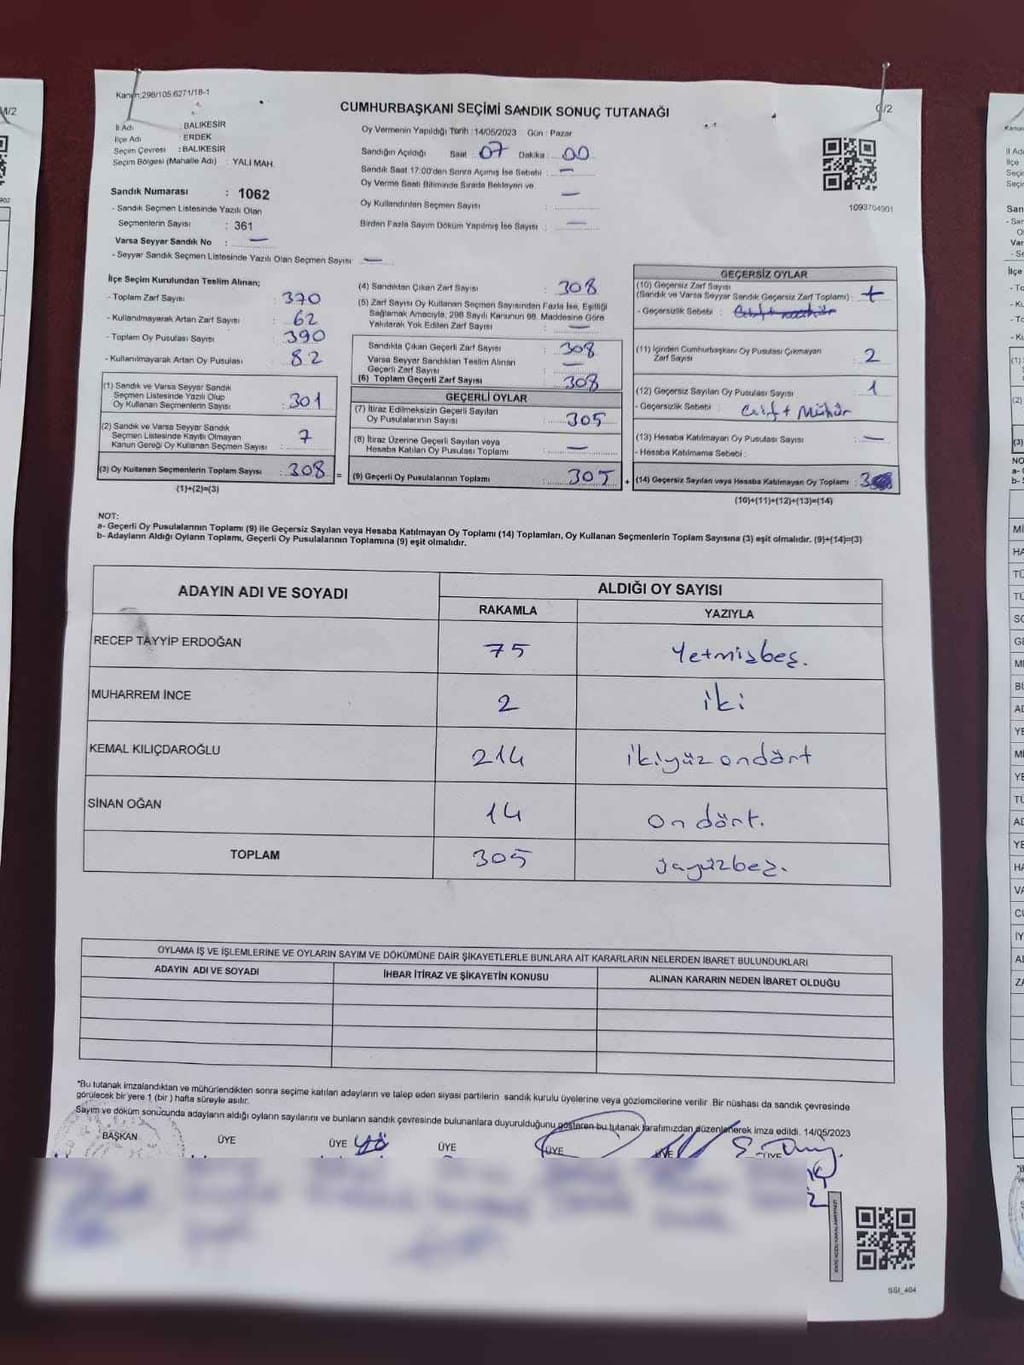 Kanun:298/105,6271/18-1
CUMHURBAŞKANI SEÇİMİ SANDIK SONUÇ TUTANAĞI
/2
İl Adı : BALIKESİR
İlçe Adı : ERDEK
Seçim Çevresi : BALIKESİR
Seçim Bölgesi (Mahalle Adı) : YALI MAH.
Sandık Numarası : 1062
- Sandık Seçmen Listesinde Yazılı Olan
Seçmenlerin Sayısı : 361
Varsa Seyyar Sandık No : —
- Seyyar Sandık Seçmen Listesinde Yazılı Olan Seçmen Sayısı : —
Oy Vermenin Yapıldığı Tarih : 14/05/2023 Gün : Pazar
Sandığın Açıldığı Saat : 07 Dakika : 00
Sandık Saat 17:00'den Sonra Açımış İse Sebebi : —
Oy Verme Saati Bitiminde Sırada Bekleyen ve
Oy Kullandırılan Seçmen Sayısı : —
Birden Fazla Sayım Döküm Yapılmış İse Sayısı : —
1093704901
İlçe Seçim Kurulundan Teslim Alınan;
- Toplam Zarf Sayısı : 370
- Kullanılmayarak Artan Zarf Sayısı : 62
- Toplam Oy Pusulası Sayısı : 390
- Kullanılmayarak Artan Oy Pusulası : 82
(1) Sandık ve Varsa Seyyar Sandık
Seçmen Listesinde Yazılı Olup
Oy Kullanan Seçmenlerin Sayısı : 301
(2) Sandık ve Varsa Seyyar Sandık
Seçmen Listesinde Kayıtlı Olmayan
Kanun Gereği Oy Kullanan Seçmen Sayısı : 7
(3) Oy Kullanan Seçmenlerin Toplam Sayısı : 308 =
(1)+(2)=(3)
(4) Sandıktan Çıkan Zarf Sayısı : 308
(5) Zarf Sayısı Oy Kullanan Seçmen Sayısından Fazla İse, Eşitliği
Sağlamak Amacıyla, 298 Sayılı Kanunun 98. Maddesine Göre
Yakılarak Yok Edilen Zarf Sayısı : —
Sandıkta Çıkan Geçerli Zarf Sayısı : 308
Varsa Seyyar Sandıktan Teslim Alınan
Geçerli Zarf Sayısı : —
(6) Toplam Geçerli Zarf Sayısı : 308
GEÇERLİ OYLAR
(7) İtiraz Edilmeksizin Geçerli Sayılan
Oy Pusulalarının Sayısı : 305
(8) İtiraz Üzerine Geçerli Sayılan veya
Hesaba Katılan Oy Pusulası Toplamı : —
(9) Geçerli Oy Pusulalarının Toplamı : 305 +
GEÇERSİZ OYLAR
(10) Geçersiz Zarf Sayısı
(Sandık ve Varsa Seyyar Sandık Geçersiz Zarf Toplamı) :
- Geçersizlik Sebebi :
(11) İçinden Cumhurbaşkanı Oy Pusulası Çıkmayan
Zarf Sayısı : 2
(12) Geçersiz Sayılan Oy Pusulası Sayısı : 1
- Geçersizlik Sebebi : Çift Mühür
(13) Hesaba Katılmayan Oy Pusulası Sayısı : —
- Hesaba Katılmama Sebebi :
(14) Geçersiz Sayılan veya Hesaba Katılmayan Oy Toplamı : 3
(10)+(11)+(12)+(13)=(14)
NOT:
a- Geçerli Oy Pusulalarının Toplamı (9) ile Geçersiz Sayılan veya Hesaba Katılmayan Oy Toplamı (14) Toplamları, Oy Kullanan Seçmenlerin Toplam Sayısına (3) eşit olmalıdır. (9)+(14)=(3)
b- Adayların Aldığı Oyların Toplamı, Geçerli Oy Pusulalarının Toplamına (9) eşit olmalıdır.
ADAYIN ADI VE SOYADI ALDIĞI OY SAYISI
RAKAMLA YAZIYLA
RECEP TAYYİP ERDOĞAN 75 Yetmişbeş.
MUHARREM İNCE 2 iki
KEMAL KILIÇDAROĞLU 214 ikiyüzondört
SİNAN OĞAN 14 on dört.
TOPLAM 305 üçyüzbeş.
OYLAMA İŞ VE İŞLEMLERİNE VE OYLARIN SAYIM VE DÖKÜMÜNE DAİR ŞİKAYETLERLE BUNLARA AİT KARARLARIN NELERDEN İBARET BULUNDUKLARI
ADAYIN ADI VE SOYADI İHBAR İTİRAZ VE ŞİKAYETİN KONUSU ALINAN KARARIN NEDEN İBARET OLDUĞU
*Bu tutanak imzalandıktan ve mühürlendikten sonra seçime katılan adayların ve talep eden siyasi partilerin sandık kurulu üyelerine veya gözlemcilerine verilir. Bir nüshası da sandık çevresinde
görülecek bir yere 1 (bir) hafta süreyle asılır.
Sayım ve döküm sonucunda adayların aldığı oyların sayılarını ve bunların sandık çevresinde bulunanlara duyurulduğunu gösteren bu tutanak tarafımızdan düzenlenerek imza edildi. 14/05/2023
BAŞKAN ÜYE ÜYE ÜYE ÜYE ÜYE ÜYE
SSİ_404